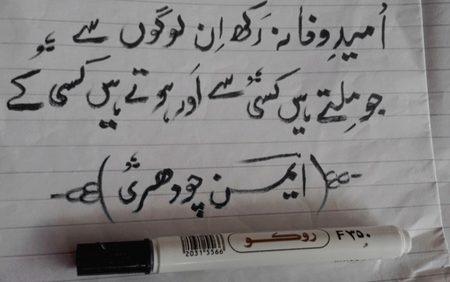 اُمیدِ وفا نہ رَکھ اِن لوگوں سے
جو مِلتے ہیں کسی سے اَور ہوتے ہیں کسی کے
(ایمن چودھری)
روكو F٣٥٠
20313566